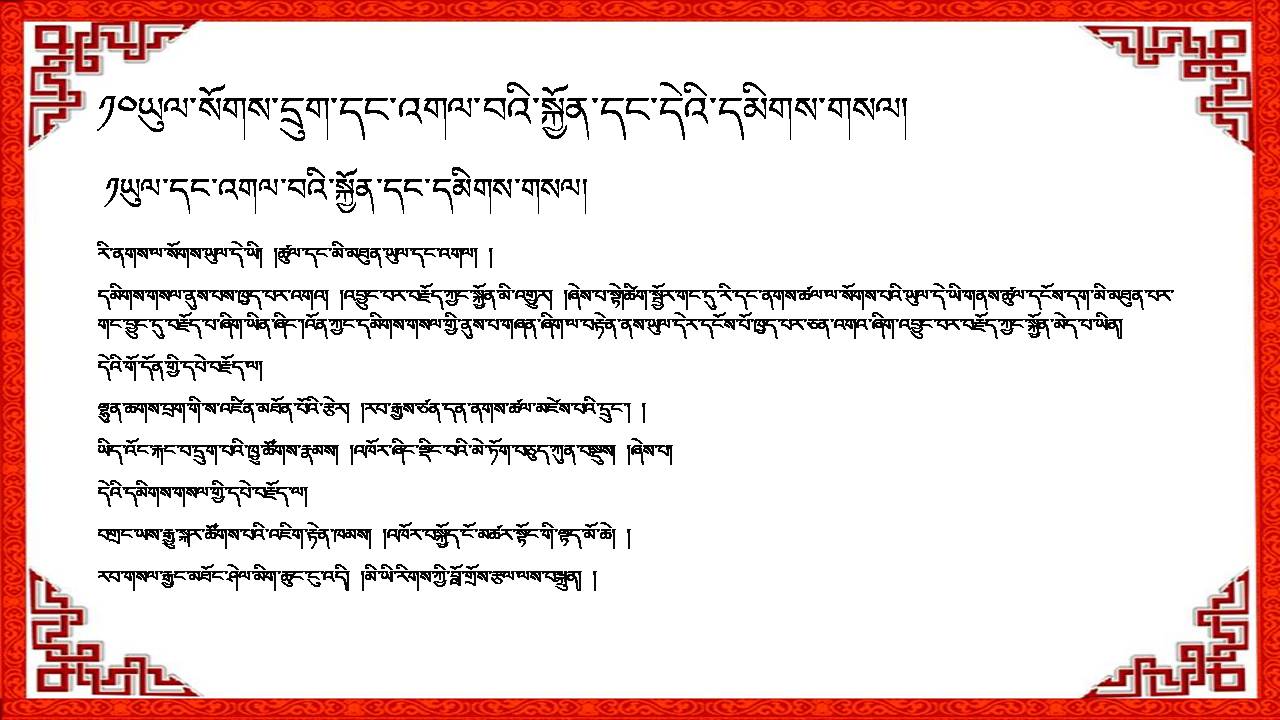 ༡༠ཡུལ་སོགས་དྲུག་དང་འགལ་བའི་སྐྱོན་དང་དེའི་དམིགས་གསལ།
༡ཡུལ་དང་འགལ་བའི་སྐྱོན་དང་དམིགས་གསལ།
རི་ནགས་ལ་སོགས་ཡུལ་དེ་ཡི། །ཚུལ་དང་མི་མཐུན་ཡུལ་དང་འགལ། །
དམིགས་གསལ་ནུས་པས་ཁྱད་པར་འགལ། །འབྱུང་པར་བརྗོད་ཀྱང་སྐྱོན་མི་འགྱུར། །ཞེས་པ་སྟེ།ཚིག་སྦྱོར་གང་དུ་རི་དང་ནགས་ཚལ་ལ་སོགས་པའི་ཡུལ་དེ་ཡི་གནས་ཚུལ་དངོས་དག་མི་མཐུན་པར་
གང་བྱུང་དུ་བརྗོད་པ་ཞིག་ཡིན་ཞིང་།འོན་ཀྱང་དམིགས་གསལ་གྱི་ནུས་པ་གཞན་ཞིག་ལ་བརྟེན་ནས་ཡུལ་དེར་དངོས་པོ་ཁྱད་པར་ཅན་འགའ་ཞིག་འབྱུང་པར་བརྗོད་ཀྱང་སྐྱོན་མེད་པ་ཡིན།
དེའི་གོ་དོན་གྱི་དཔེ་བརྗོད་ལ།
ལྷུན་ཆགས་བྲག་གི་ས་འཛིན་མཐོན་པོའི་རྩེར། །རབ་རྒྱས་ཙན་དན་ནགས་ཚལ་མཛེས་པའི་དྲུང་། །
ཡིད་འོང་རྐང་པ་དྲུག་པའི་ཁྱུ་ཚོགས་རྣམས། །འཁོར་ཞིང་ལྡིང་བའི་མེ་ཏོག་བཅུད་ཀུན་བསྡུས། །ཞེས་པ།
དེའི་དམིགས་གསལ་གྱི་དཔེ་བརྗོད་ལ།
བགྲང་ཡས་རྒྱུ་སྐར་ཚོགས་པའི་འཇིག་རྟེན་ཁམས། །འཁོར་བསྐྱོད་ངོ་མཚར་སྟོང་གི་ལྟད་མོ་ཆེ། །
རབ་གསལ་རྒྱང་མཐོང་ཤེལ་མིག་ཆུང་ངུ་འདི། །མི་ཡི་རིགས་ཀྱི་བློ་གྲོས་རྩལ་ལས་བསྐྲུན། །